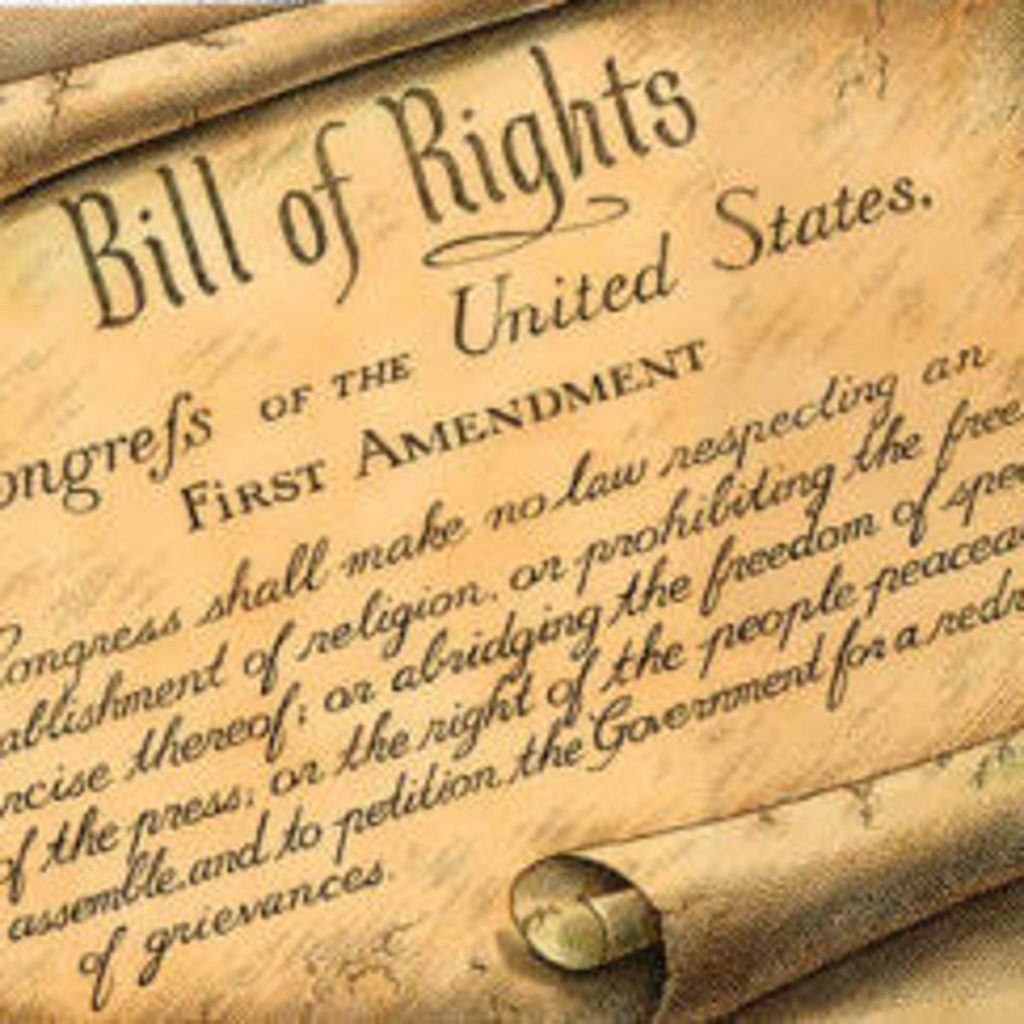 Bill of Rights
ongreſs OF THE United States.
FIRST AMENDMENT
Congress shall make no law respecting an
ablishment of religion, or prohibiting the free
rcise thereof; or abridging the freedom of spee
of the press; or the right of the people peacea
assemble, and to petition the Government for a redr
of grievances.